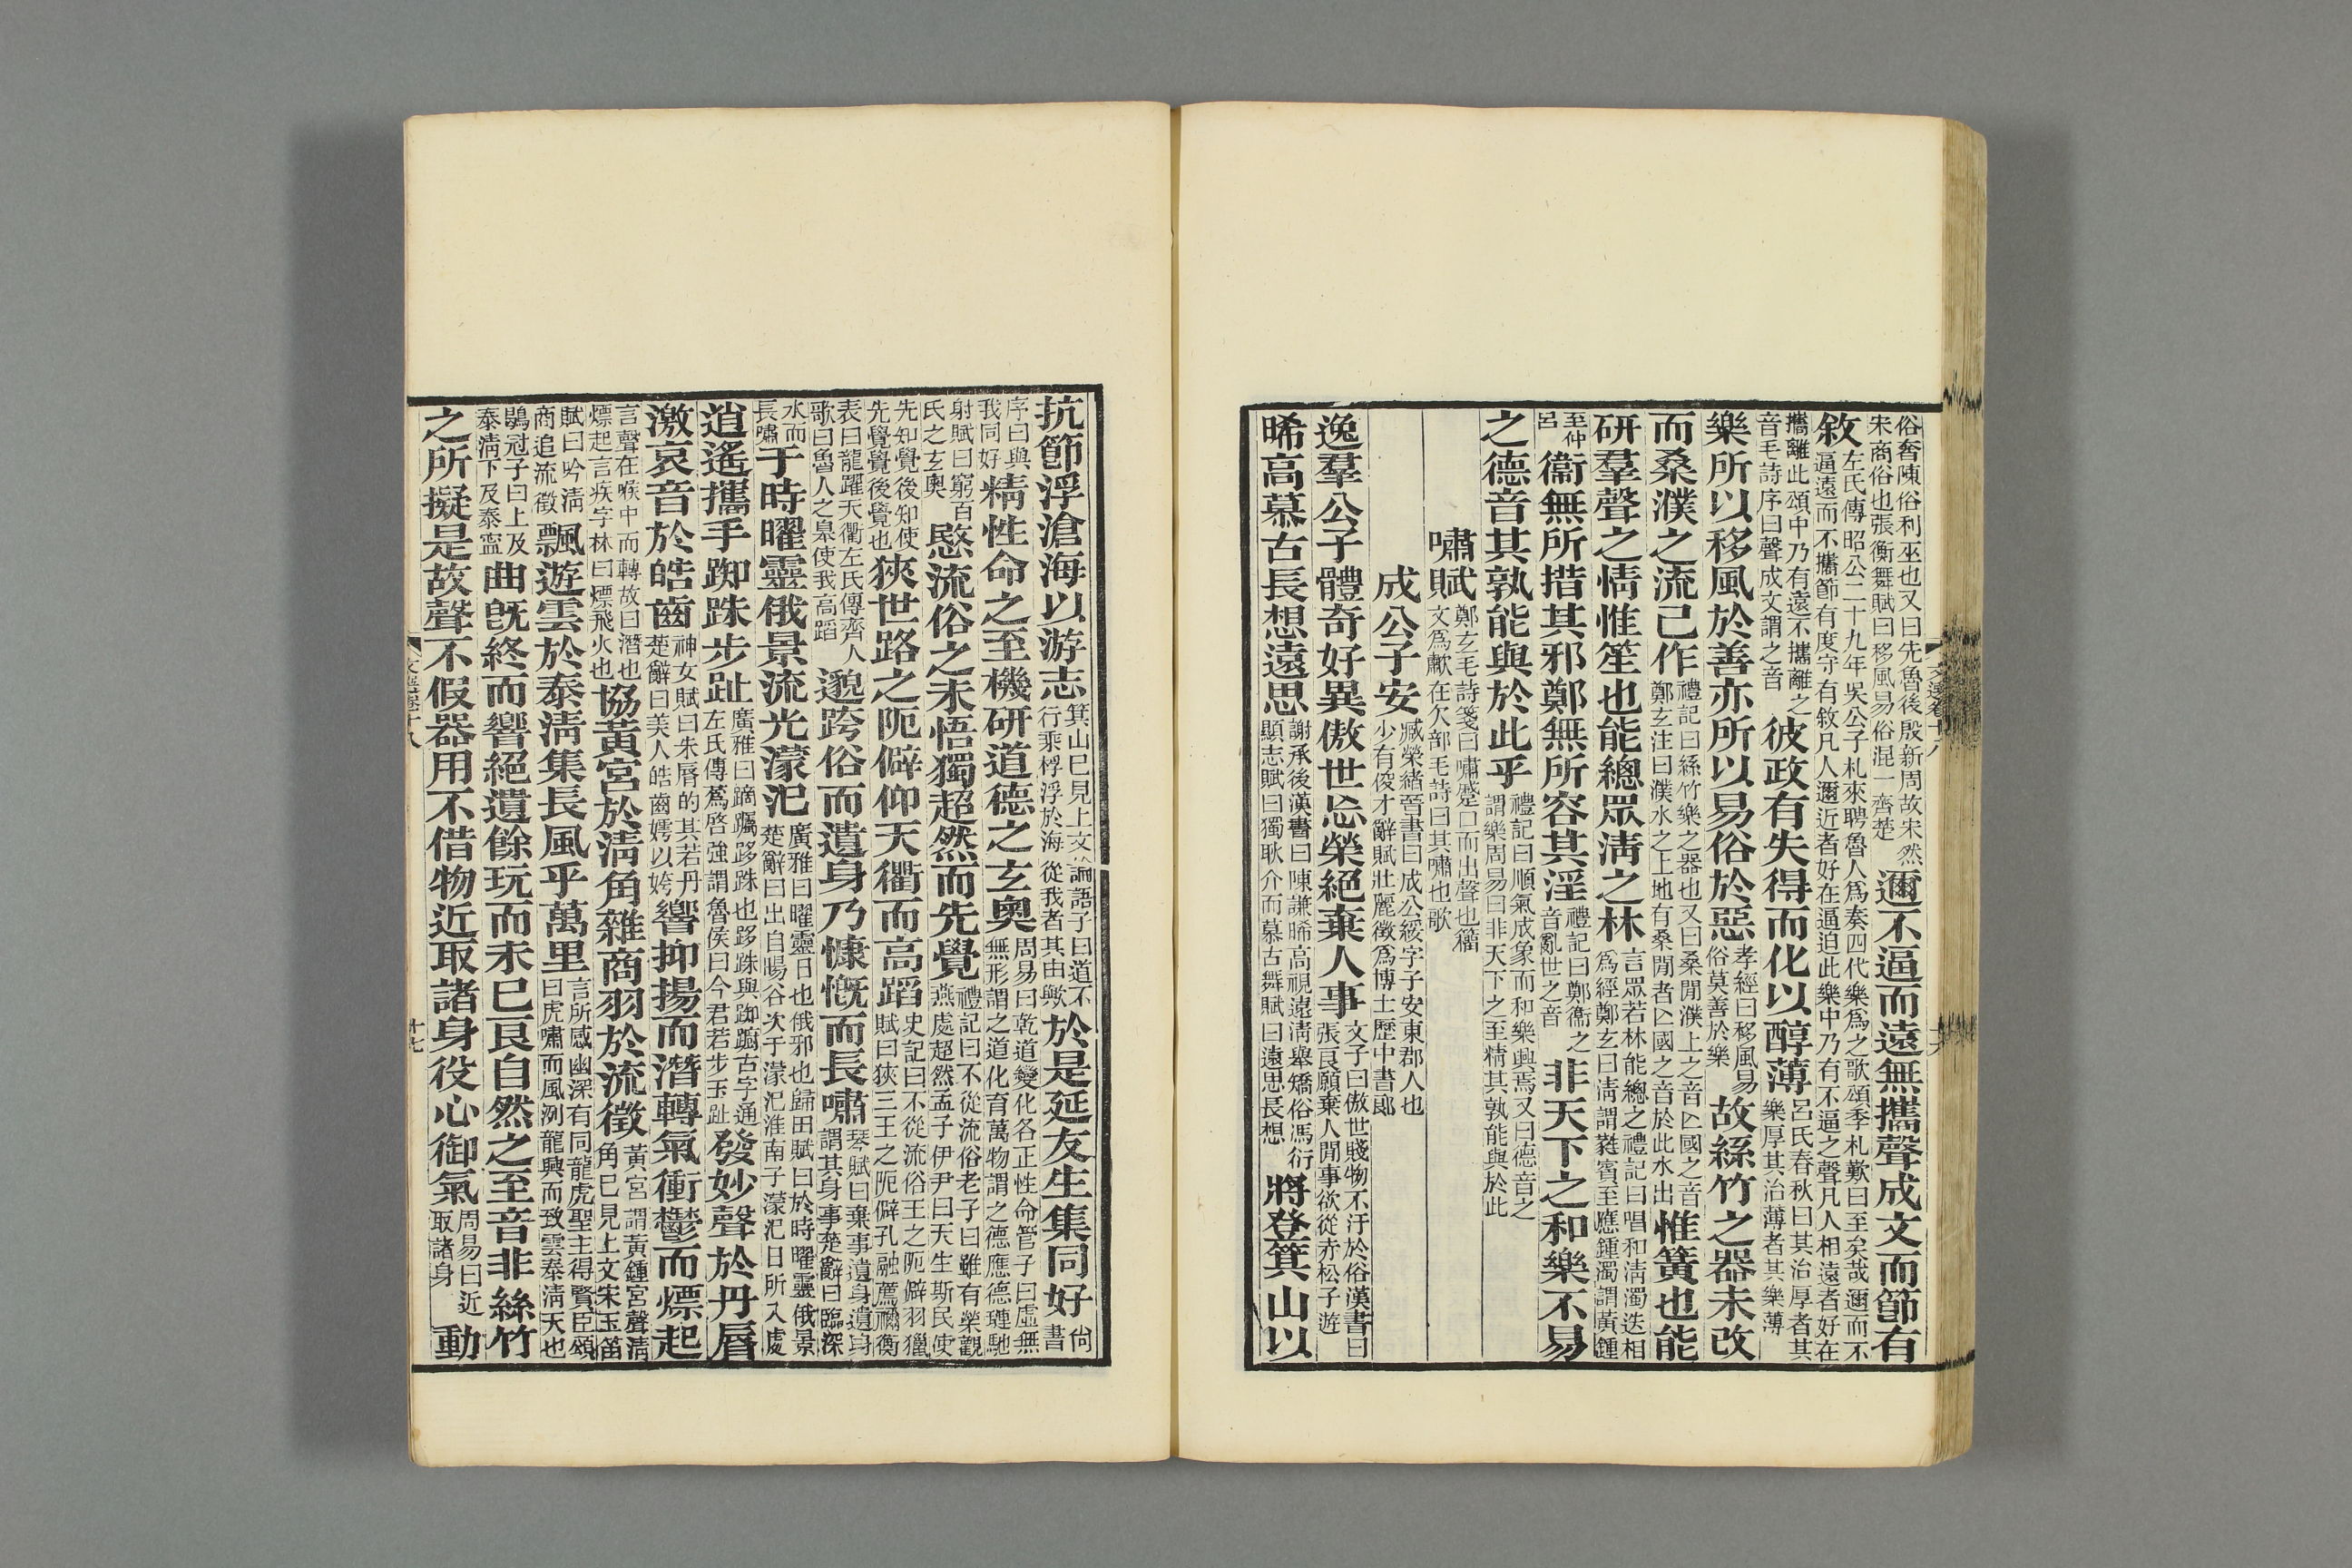 俗奢陳俗利巫也又曰先魯後殷新周故宋然宋商俗也張衡舞賦曰移風易俗混一齊楚邇不逼而遠無攜聲成文而節有
敘左氏傳昭公二十九年吳公子札來聘魯人爲奏四代樂爲之歌頌季札歎曰至矣哉邇而不逼遠而不攜節有度守有敘凡人邇近者好在逼迫此樂中乃有不逼之聲凡人相遠者好在
攜離此頌中乃有遠不攜離之音毛詩序曰聲成文謂之音彼政有失得而化以醇薄呂氏春秋曰其治厚者其樂厚其治薄者其樂薄
樂所以移風於善亦所以易俗於惡孝經曰移風易俗莫善於樂故絲竹之器未改
而桑濮之流已作禮記曰絲竹樂之器也又曰桑閒濮上之音亾國之音鄭玄注曰濮水之上地有桑閒者亾國之音於此水出惟簧也能
研羣聲之情惟笙也能總眾淸之林言眾若林能總之禮記曰唱和淸濁迭相爲經鄭玄曰淸謂蕤賓至應鍾濁謂黃鍾
至仲呂衞無所措其邪鄭無所容其淫禮記曰鄭衞之音亂世之音非天下之和樂不易
之德音其孰能與於此乎禮記曰順氣成象而和樂興焉又曰德音之謂樂周易曰非天下之至精其孰能與於此
嘯賦鄭玄毛詩箋曰嘯蹙口而出聲也籀文爲歗在欠部毛詩曰其嘯也歌
成公子安臧榮緒晉書曰成公綏字子安東郡人也少有俊才辭賦壯麗徵爲博士歷中書郎
逸羣公子體奇好異傲世忘榮絕棄人事文子曰傲世賤物不汙於俗漢書曰張良願棄人閒事欲從赤松子遊
晞高慕古長想遠思謝承後漢書曰陳謙晞高視遠淸舉矯俗馮衍顯志賦曰獨耿介而慕古舞賦曰遠思長想將登箕山以
文選卷十八
十六
抗節浮滄海以游志箕山已見上文論語子曰道不行乘桴浮於海從我者其由歟於是延友生集同好尙書
序曰與我同好精性命之至機研道德之玄奧周易曰乾道變化各正性命管子曰虛無無形謂之道化育萬物謂之德應德璉馳
射賦曰窮百氏之玄奧愍流俗之未悟獨超然而先覺禮記曰不從流俗老子曰雖有榮觀燕處超然孟子伊尹曰天生斯民使
先知覺後知使先覺覺後覺也狹世路之阨僻仰天衢而高蹈史記曰不從流俗王之阨僻羽獵賦曰狹三王之阨僻孔融薦禰衡
表曰龍躍天衢左氏傳齊人歌曰魯人之臯使我高蹈邈跨俗而遺身乃慷慨而長嘯琴賦曰棄事遺身遺身謂其身事楚辭曰臨深
水而長嘯于時曜靈俄景流光濛汜廣雅曰曜靈日也俄邪也歸田賦曰於時曜靈俄景楚辭曰出自暘谷次于濛汜淮南子濛汜日所入處
逍遙攜手踟跦步趾廣雅曰蹢躅跢跦也跢跦與踟躕古字通左氏傳蒍啓強謂魯侯曰今君若步玉趾發妙聲於丹脣
激哀音於皓齒神女賦曰朱脣的其若丹楚辭曰美人皓齒嫮以姱響抑揚而潛轉氣衝鬱而熛起
言聲在喉中而轉故曰潛也熛起言疾字林曰熛飛火也協黃宮於淸角雜商羽於流徵黃宮謂黃鍾宮聲淸角已見上文宋玉笛
賦曰吟淸商追流徵飄遊雲於泰淸集長風乎萬里言所感幽深有同龍虎聖主得賢臣頌曰虎嘯而風洌龍興而致雲泰淸天也
鶡冠子曰上及泰淸下及泰寍曲旣終而響絕遺餘玩而未已良自然之至音非絲竹
之所擬是故聲不假器用不借物近取諸身役心御氣周易曰近取諸身動
文選卷十八
十七